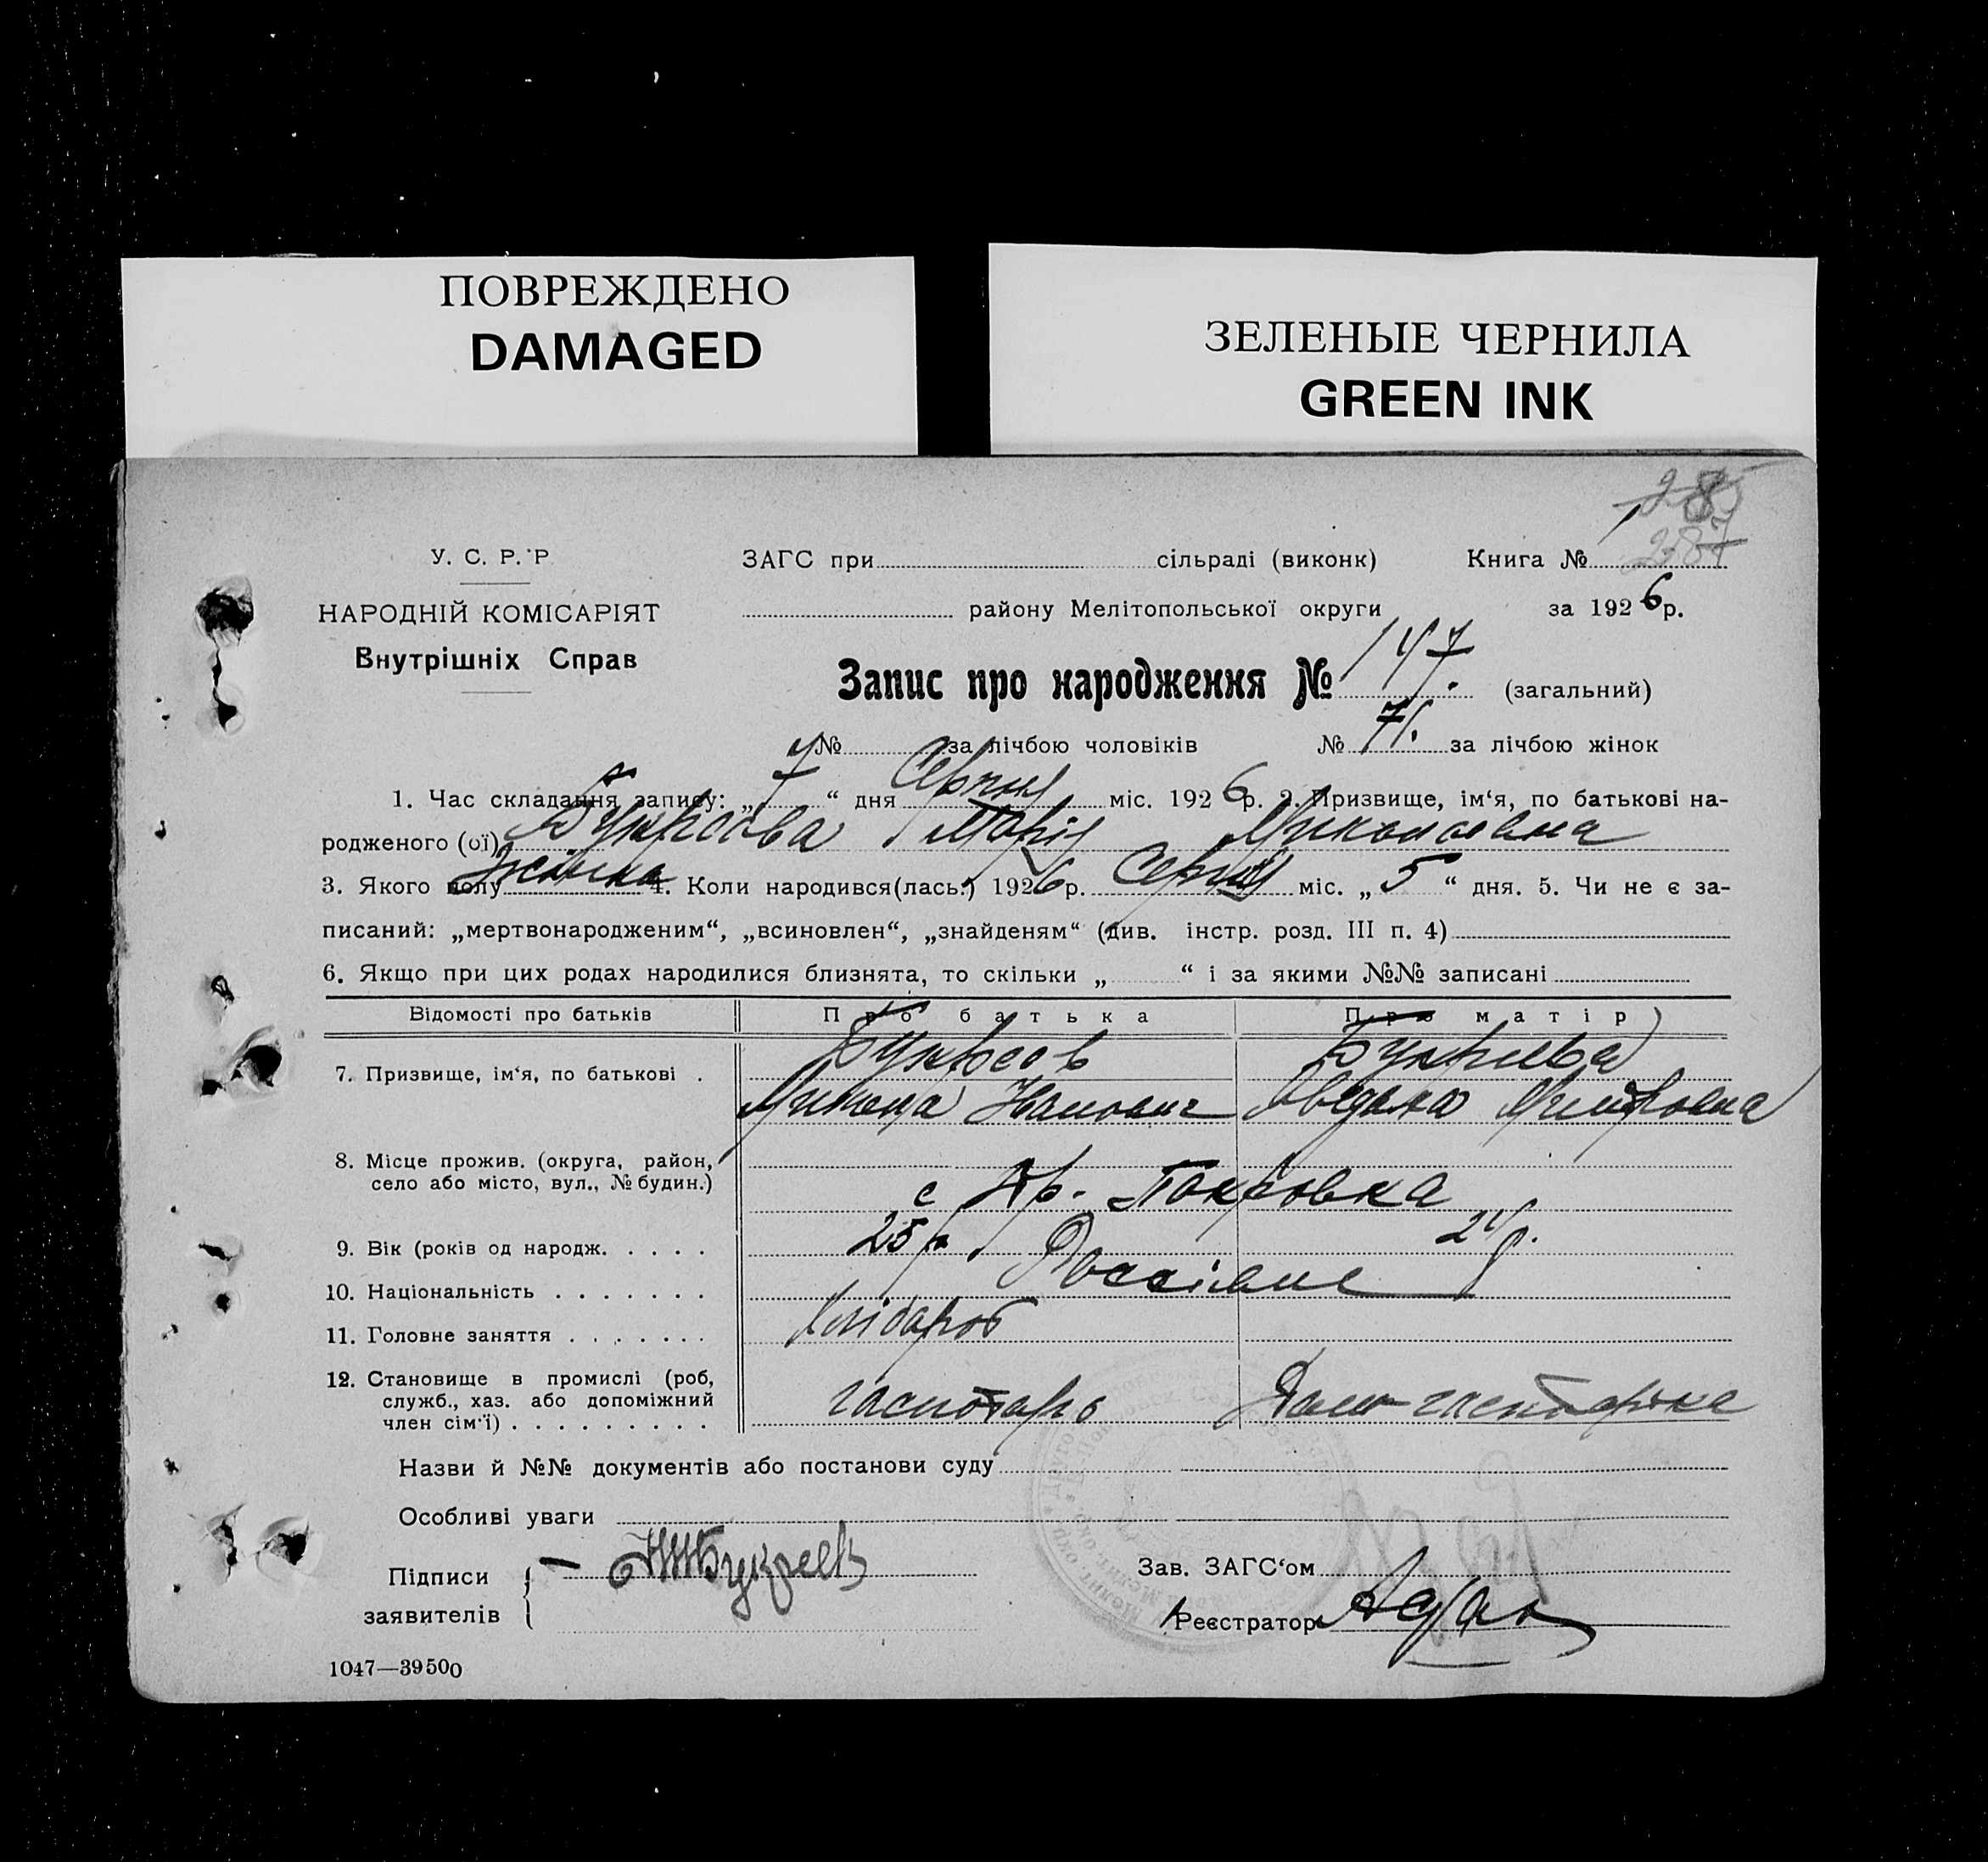 ПОВРЕЖДЕНО
DAMAGED
ЗЕЛЕНЫЕ ЧЕРНИЛА
GREEN INK
28
287
У. С. Р. Р
НАРОДНІЙ КОМІСАРІЯТ
Внутрішніх Справ
ЗАГС при сільраді (виконк) Книга №
району Мелітопольської округи за 1926 р.
Запис про народження № 147. (загальний)
№ за лічбою чоловіків № 71. за лічбою жінок
1. Час складання запису: „7“ дня Серпня міс. 1926 р. 2. Призвище, ім‘я, по батькові на-
родженого (ої) Букреєва Марія Миколаевна
3. Якого полу Жінка 4. Коли народився(лась.) 1926 р. Серпня міс. „5“ дня. 5. Чи не є за-
писаний: „мертвонародженим“, „всиновлен“, „знайденям“ (див. інстр. розд. III п. 4)
6. Якщо при цих родах народилися близнята, то скільки „ “ і за якими №№ записані
Відомості про батьків Про батька Про матір
Букреєв Букреева
7. Призвище, ім‘я, по батькові .
Микола Авдотья Дмитровна
8. Місце прожив. (округа, район,
село або місто, вул., № будин.)
с Др. Покровка
9. Вік (років од народж. . . . . 25 р. 24 р.
10. Національність . . . . . . . Россіяне
11. Головне заняття . . . . . . . Хлібороб
12. Становище в промислі (роб,
служб., хаз. або допоміжний
член сім‘ї) . . . . . . . . . господарь Дом господарка
Назви й №№ документів або постанови суду
Особливі уваги
Підписи
заявителів
Букреев
Зав. ЗАГС‘ом
Реєстратор
1047—39500